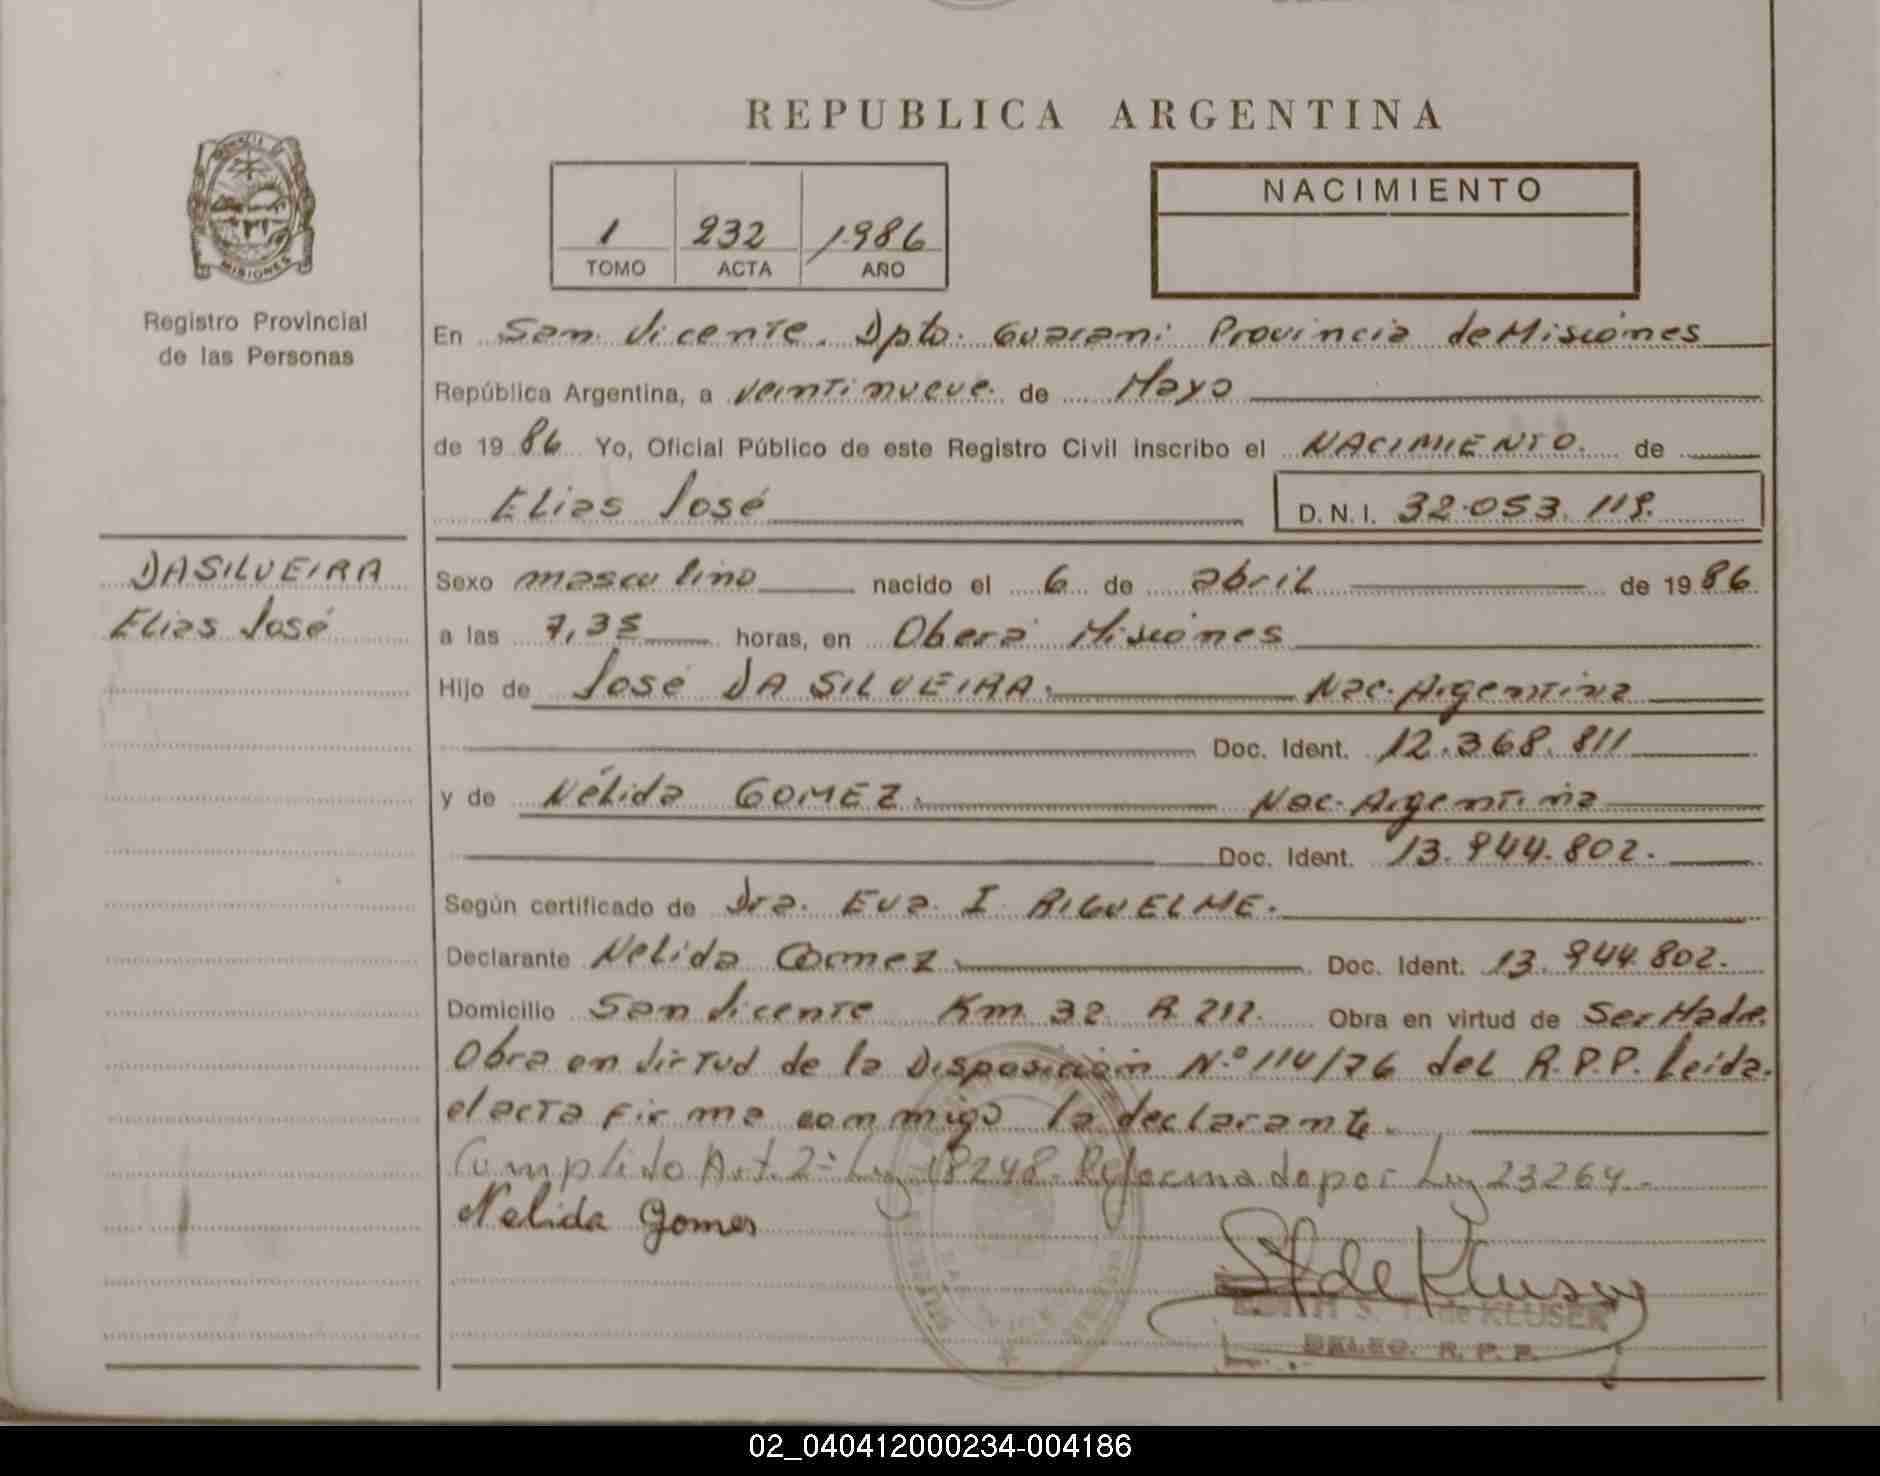 REPUBLICA ARGENTINA
PROVINCIA DE
MISIONES
Registro Provincial
de las Personas
1 232 1986
TOMO ACTA AÑO
NACIMIENTO
En San Vicente. Dpto. Guarani Provincia de Misiones
República Argentina, a veintinueve de Mayo
de 1986 Yo, Oficial Público de este Registro Civil inscribo el NACIMIENTO. de
Elias José D.N.I. 32.053.119.
DASILVEIRA
Elias José
Sexo masculino nacido el 6 de abril de 1986
a las 7,35 horas, en Oberá Misiones
Hijo de José DA SILVEIRA. Nac. Argentina
Doc. Ident. 12.368.811
y de Nélida GOMEZ. Nac. Argentina
Doc. Ident. 13.944.802.
Según certificado de Dra. Eva I RIGUELME.
Declarante Nelida Gomez Doc. Ident. 13.944.802.
Domicilio San Vicente Km. 32 R. 212. Obra en virtud de Ser Madre.
Obra en virtud de la Disposición N.º 114/76 del R.P.P. Leida.
el acta firma conmigo la declarante.
Cumplido Art. 2º Ley 18248. Reformada por Ley 23264.-
Nelida Gomes
S T de Kluser
EDITH S. T. de KLUSER
DELEG. R. P. P.
02_040412000234-004186